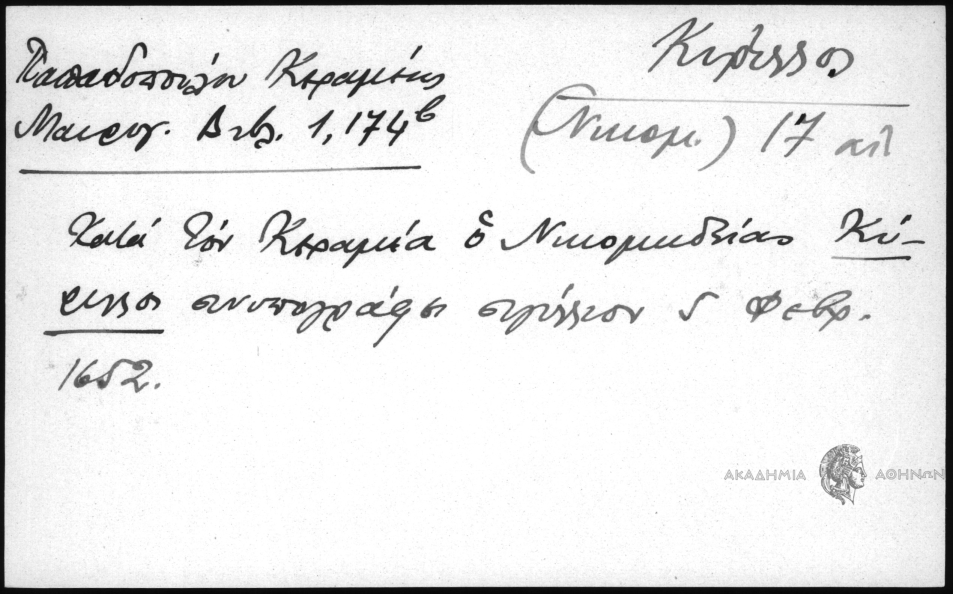 Παπαδοπούλου Κεραμέως
Μαυρογ. Βιβλ. 1,174β
Κύριλλος
(Νικομ.) 17 αἰ
Κατά τόν Κεραμέα ὁ Νικομηδείας Κύ-
ριλλος συνυπογράφει σιγίλλιον 5 Φεβρ.
1652.
ΑΚΑΔΗΜΙΑ ΑΘΗΝΩΝ